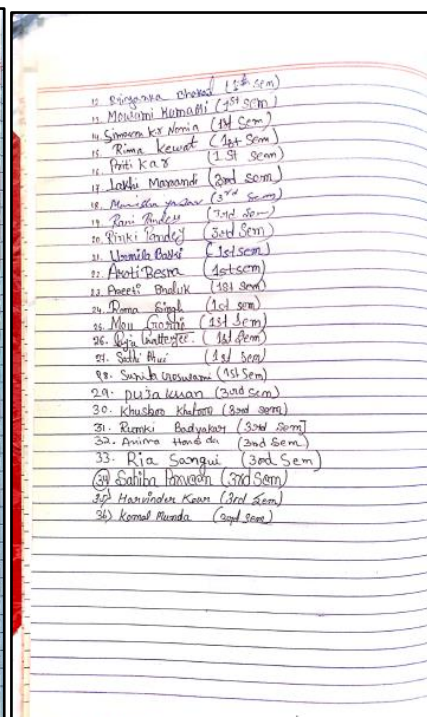 12. Priyanka (1st Sem)
13. Mousumi Kumari (1st Sem)
14. Simran kr Nonia (1st Sem)
15. Rima Kewat (1st Sem)
16. Priti Kar (1 St Sem)
17. Lakhi Marandi (3rd Sem)
18. Manisha (3rd Sem)
19. Rani Pandey (3rd Sem)
20. Pinki Pandey (3rd Sem)
21. Urmila Baski (1st sem)
22. Aroti Besra (1st sem)
23. Preeti Bhaluk (1st sem)
24. Roma Singh (1st sem)
25. Mou Gorai (1st Sem)
26. Puja Chatterjee. (1st Sem)
27. Sathi Bhui (1st Sem)
28. Sunita Goswami (1st Sem)
29. puja kuan (3rd sem)
30. Khusboo Khatoon (3rd sem)
31. Rumki Badyakar (3rd Sem)
32. Anima Hansda (3rd Sem)
33. Ria Sangui (3rd Sem)
34 Sahiba Parveen (3rd Sem)
35) Harvinder Kaur (3rd Sem)
36) Komal Munda (3rd Sem)